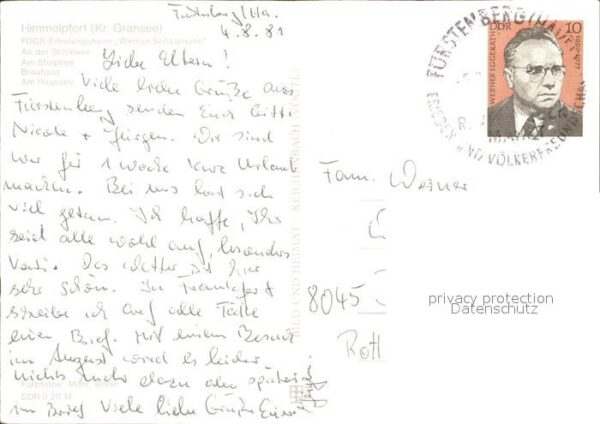 Himmelpfort (Kr. Gransee)
FDGB-Erholungsheim "Werner Schaumann"
An der Schleuse
Am Stolpsee
Brauhaus
Am Haussee
Fürstenberg/Ha.
4.8.81
Liebe Eltern!
Viele liebe Grüße aus
Fürstenberg senden Euch Gitti
Nicole + Jürgen. Wir sind
hier für 1 Woche kurz Urlaub
machen. Bei uns hat sich
viel getan. Ich hoffe, Ihr
seid alle wohl auf, besonders
Vati. Das Wetter ist hier
sehr schön. In Frankfurt
schreibe ich auf alle Fälle
einen Brief. Mit einem Besuch
im August wird es leider
nichts mehr dazu aber später
im Brief Viele liebe Grüße Euer
Jürgen
DDR 0,20 M
BILD UND HEIMAT REICHENBACH (VOGTL)
WERNER EGGERATH
1900-1977
DDR
10
FÜRSTENBERG (HAVEL)
UND VÖLKERF
Fam. Weiner
8045
Rott
privacy protection
Datenschutz